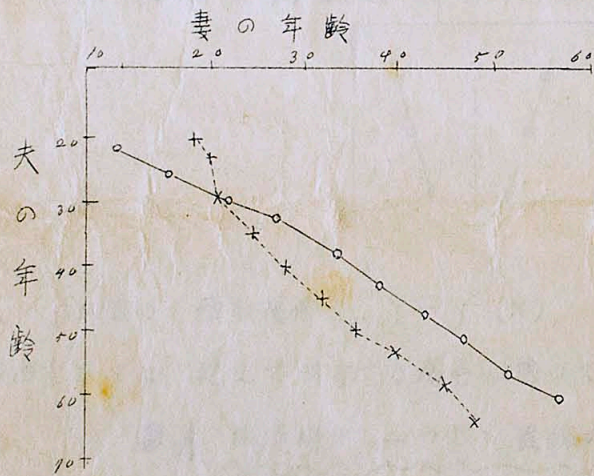 妻の年齢
10 20 30 40 50 60
夫の年齢
20
30
40
50
60
70